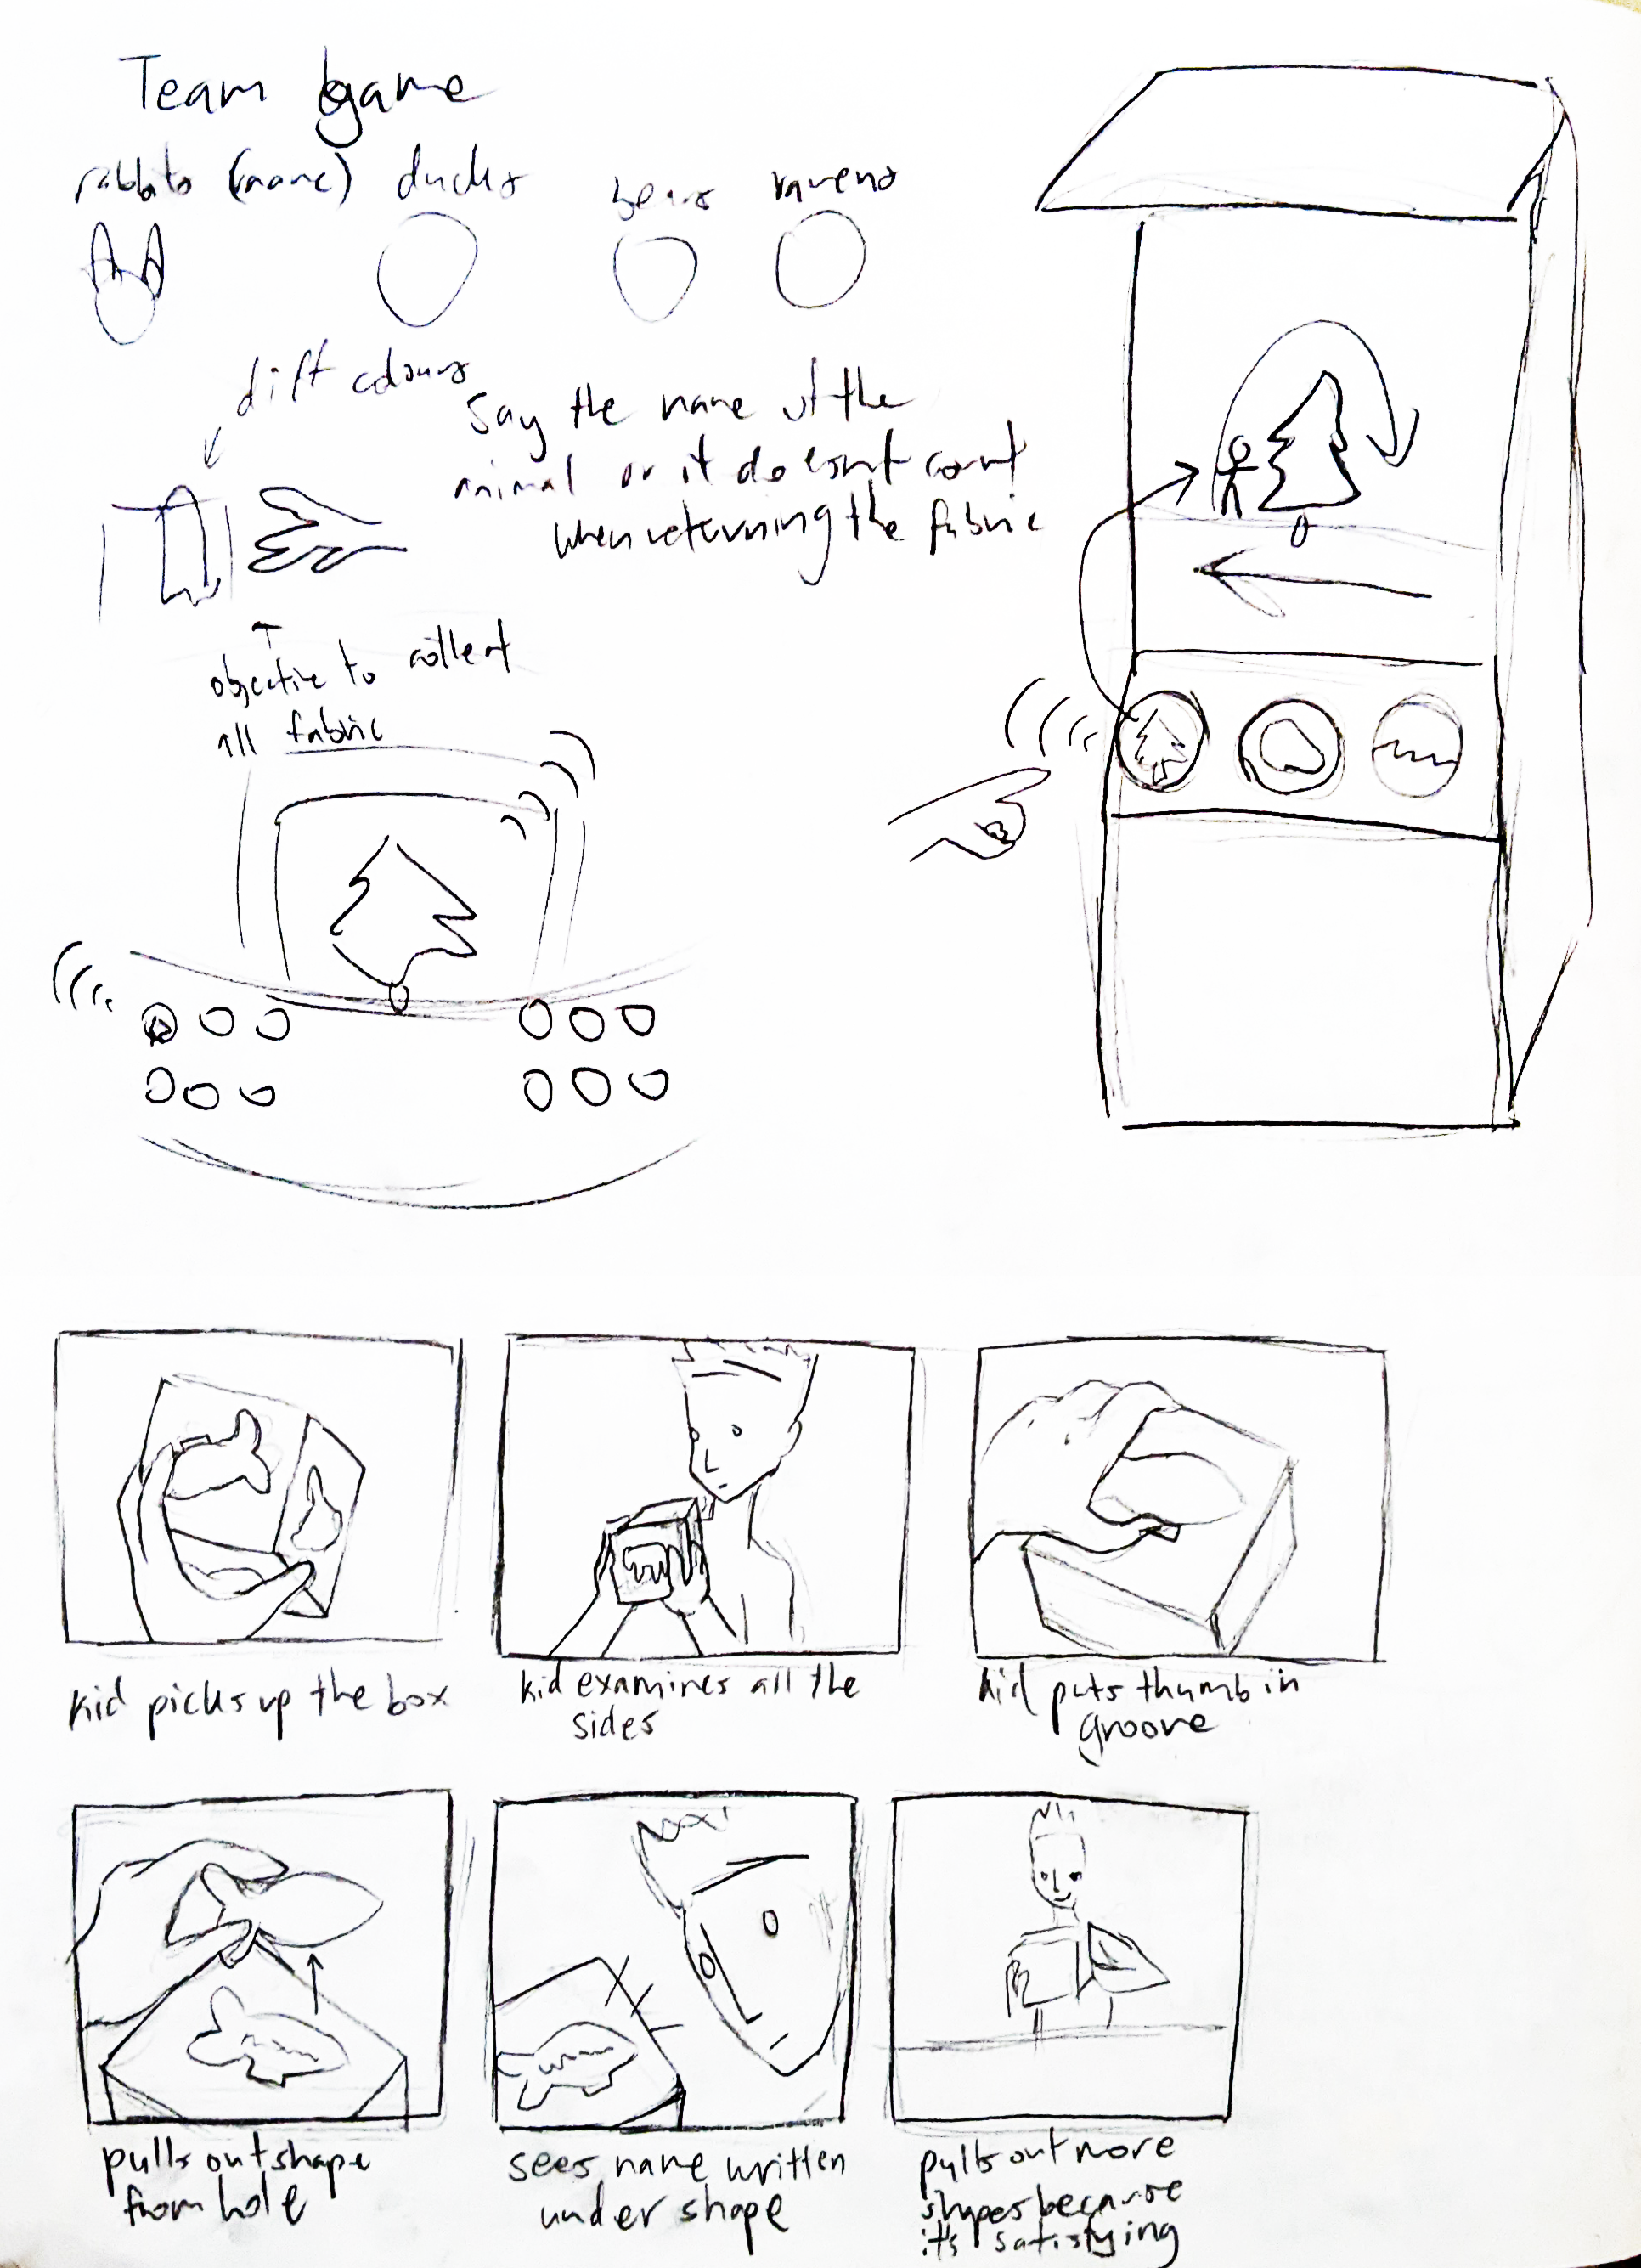 Team game
rabbits (name) ducks bears ravens
diff colours
Say the name of the
animal or it doesnt count
when returning the fabric
objective to collect
all fabric
kid picks up the box
kid examines all the
sides
kid puts thumb in
groove
pulls out shape
from hole
sees name written
under shape
pulls out more
shapes because
it's satisfying